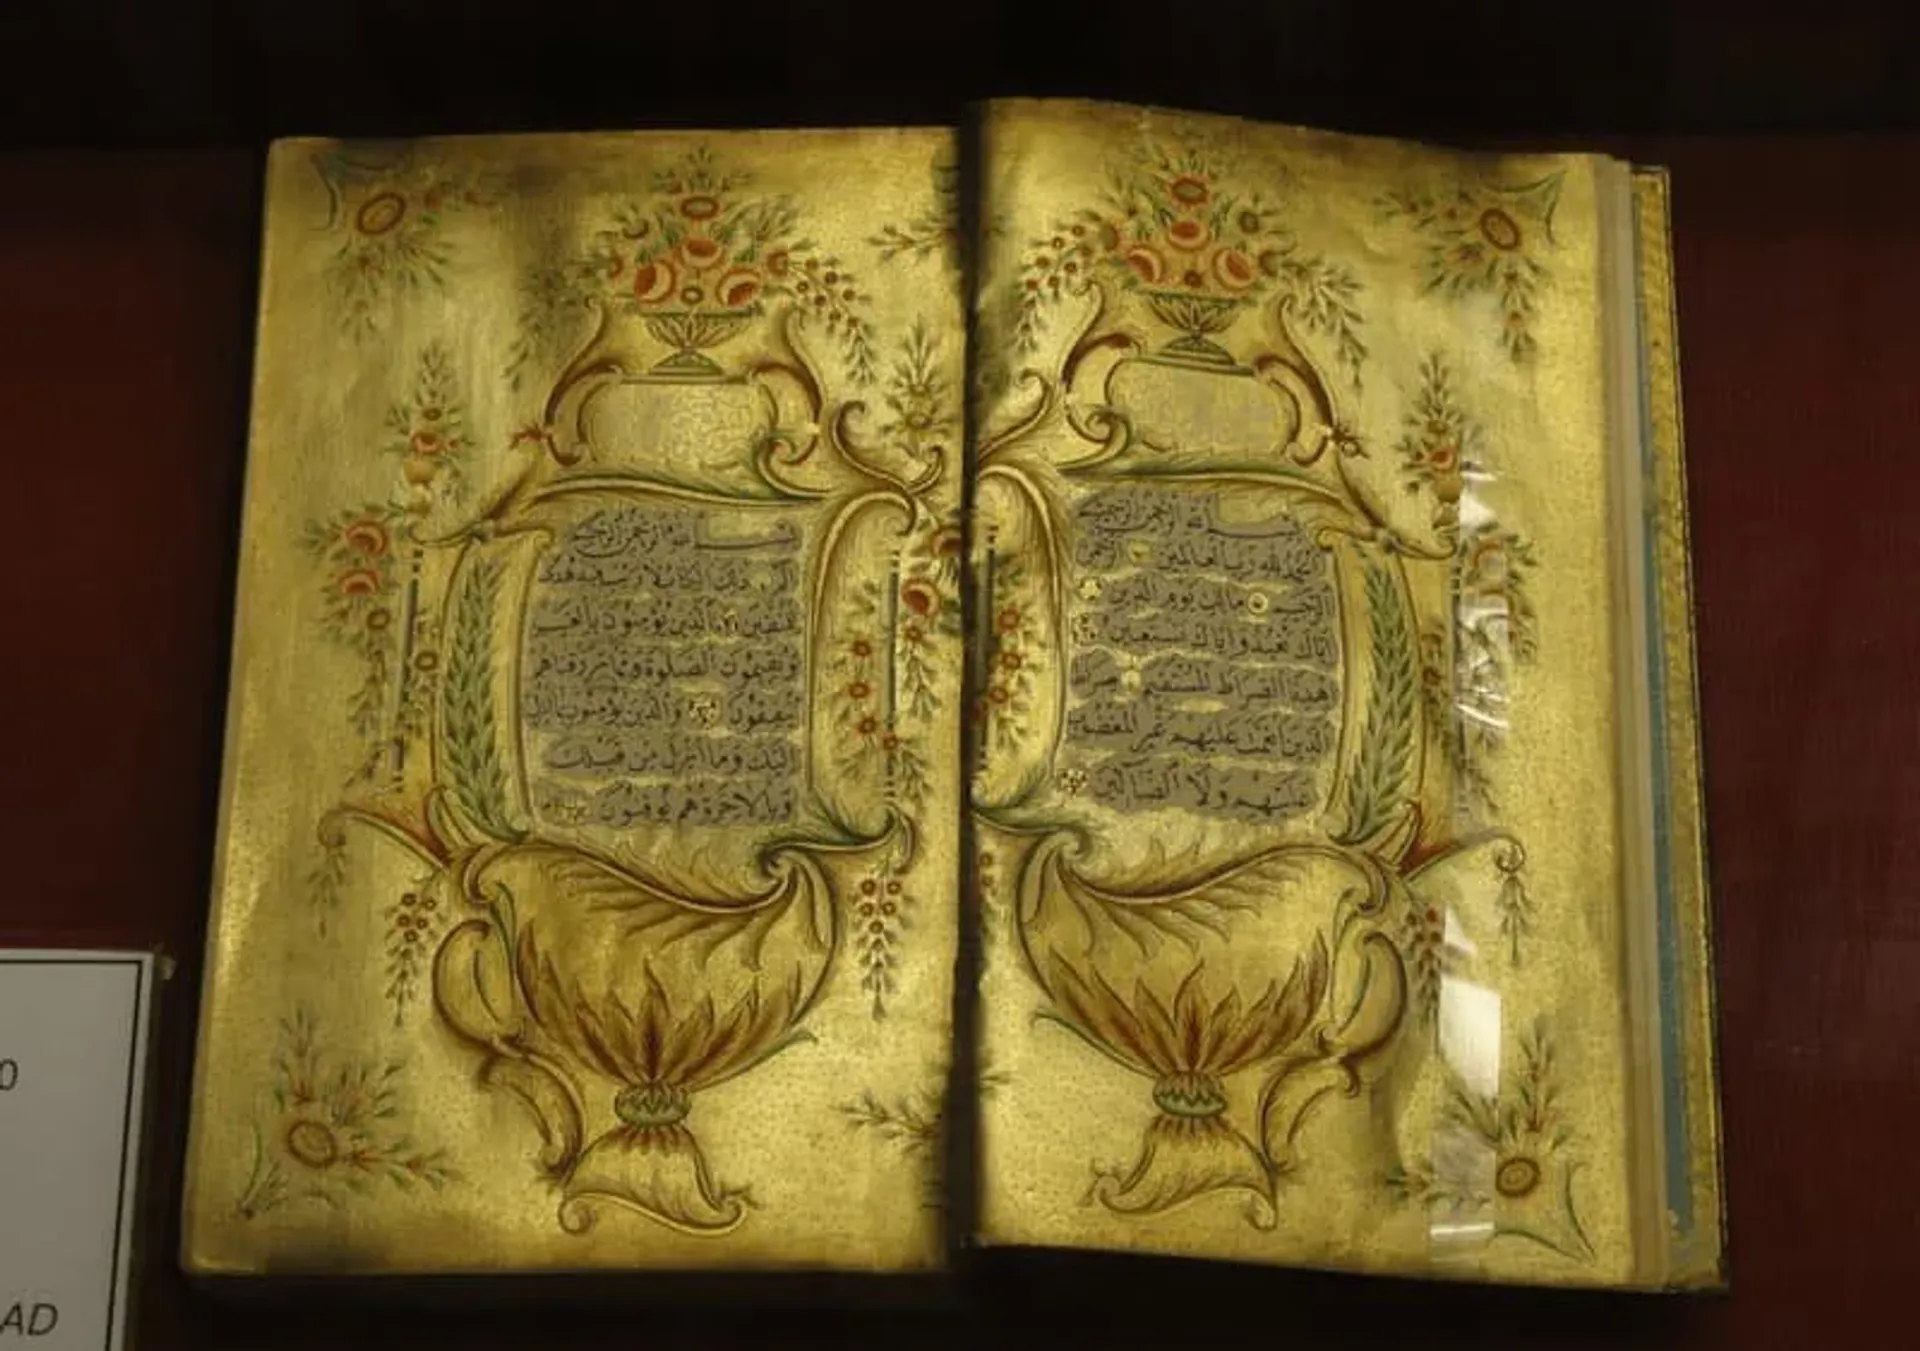 بِسْمِ اللهِ الرَّحْمٰنِ الرَّحِيمِ
اَلْحَمْدُ لِلّٰهِ رَبِّ الْعَالَمِينَ الرَّحْمٰنِ
الرَّحِيمِ مَالِكِ يَوْمِ الدِّينِ
اِيَّاكَ نَعْبُدُ وَاِيَّاكَ نَسْتَعِينُ
اِهْدِنَا الصِّرَاطَ الْمُسْتَقِيمَ صِرَاطَ
الَّذِينَ اَنْعَمْتَ عَلَيْهِمْ غَيْرِ الْمَغْضُوبِ
عَلَيْهِمْ وَلَا الضَّالِّينَ
بِسْمِ اللهِ الرَّحْمٰنِ الرَّحِيمِ
الم ذٰلِكَ الْكِتَابُ لَا رَيْبَ فِيهِ هُدًى
لِلْمُتَّقِينَ الَّذِينَ يُؤْمِنُونَ بِالْغَيْبِ
وَيُقِيمُونَ الصَّلٰوةَ وَمِمَّا رَزَقْنَاهُمْ
يُنْفِقُونَ وَالَّذِينَ يُؤْمِنُونَ بِمَا اُنْزِلَ
اِلَيْكَ وَمَا اُنْزِلَ مِنْ قَبْلِكَ
وَبِالْاٰخِرَةِ هُمْ يُوقِنُونَ
0
AD